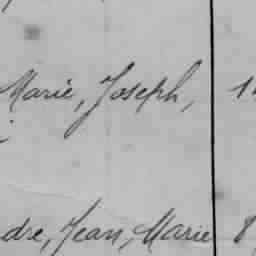 Marie, Joseph, 1
dre, Jean, Marie 8